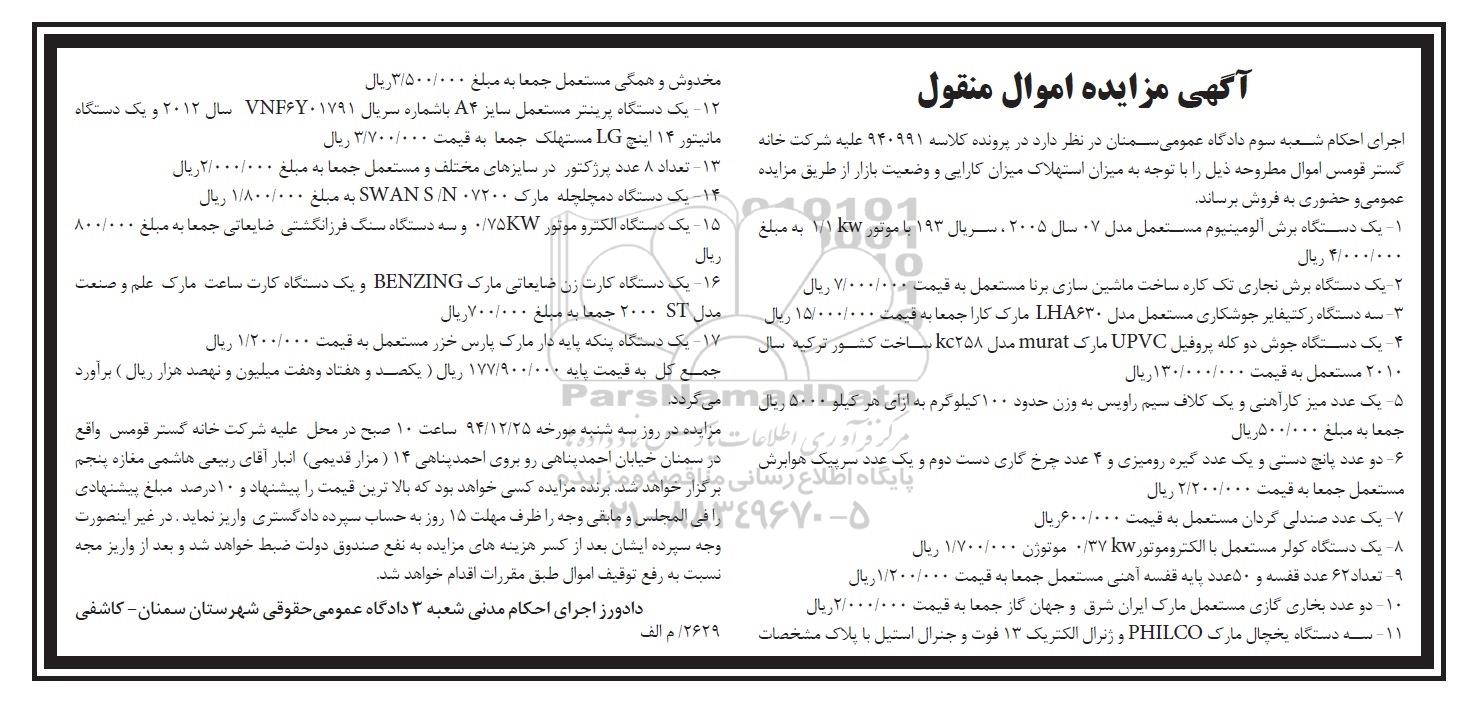 آگهی مزایده اموال منقول
اجرای احکام شعبه سوم دادگاه عمومی‌سمنان در نظر دارد در پرونده کلاسه ۹۴۰۹۹۱ علیه شرکت خانه
گستر قومس اموال مطروحه ذیل را با توجه به میزان استهلاک میزان کارایی و وضعیت بازار از طریق مزایده
عمومی‌و حضوری به فروش برساند.
۱- یک دستگاه برش آلومینیوم مستعمل مدل ۰۷ سال ۲۰۰۵ ، سریال ۱۹۳ با موتور ۱/۱ kw به مبلغ
۴/۰۰۰/۰۰۰ ریال
۲-یک دستگاه برش نجاری تک کاره ساخت ماشین سازی برنا مستعمل به قیمت ۷/۰۰۰/۰۰۰ ریال
۳- سه دستگاه رکتیفایر جوشکاری مستعمل مدل LHA۶۳۰ مارک کارا جمعا به قیمت ۱۵/۰۰۰/۰۰۰ ریال
۴- یک دستگاه جوش دو کله پروفیل UPVC مارک murat مدل kc۲۵۸ ساخت کشور ترکیه سال
۲۰۱۰ مستعمل به قیمت ۱۳۰/۰۰۰/۰۰۰ریال
۵- یک عدد میز کارآهنی و یک کلاف سیم راویس به وزن حدود ۱۰۰کیلوگرم به ازای هر کیلو ۵۰۰۰ ریال
جمعا به مبلغ ۵۰۰/۰۰۰ریال
۶- دو عدد پانچ دستی و یک عدد گیره رومیزی و ۴ عدد چرخ گاری دست دوم و یک عدد سرپیک هوابرش
مستعمل جمعا به قیمت ۲/۲۰۰/۰۰۰ ریال
۷- یک عدد صندلی گردان مستعمل به قیمت ۶۰۰/۰۰۰ریال
۸- یک دستگاه کولر مستعمل با الکتروموتور۰/۳۷ kw موتوژن ۱/۷۰۰/۰۰۰ ریال
۹- تعداد۶۲ عدد قفسه و ۵۰عدد پایه قفسه آهنی مستعمل جمعا به قیمت ۱/۲۰۰/۰۰۰ریال
۱۰- دو عدد بخاری گازی مستعمل مارک ایران شرق و جهان گاز جمعا به قیمت ۲/۰۰۰/۰۰۰ریال
۱۱- سه دستگاه یخچال مارک PHILCO و ژنرال الکتریک ۱۳ فوت و جنرال استیل با پلاک مشخصات
مخدوش و همگی مستعمل جمعا به مبلغ ۳/۵۰۰/۰۰۰ریال
۱۲- یک دستگاه پرینتر مستعمل سایز A۴ باشماره سریال VNF۶Y۰۱۷۹۱ سال ۲۰۱۲ و یک دستگاه
مانیتور ۱۴ اینچ LG مستهلک جمعا به قیمت ۳/۷۰۰/۰۰۰ ریال
۱۳- تعداد ۸ عدد پرژکتور در سایزهای مختلف و مستعمل جمعا به مبلغ ۲/۰۰۰/۰۰۰ریال
۱۴- یک دستگاه دمچلچله مارک SWAN S /N ۰۷۲۰۰ به مبلغ ۱/۸۰۰/۰۰۰ ریال
۱۵- یک دستگاه الکترو موتور ۰/۷۵KW و سه دستگاه سنگ فرزانگشتی ضایعاتی جمعا به مبلغ ۸۰۰/۰۰۰
ریال
۱۶- یک دستگاه کارت زن ضایعاتی مارک BENZING و یک دستگاه کارت ساعت مارک علم و صنعت
مدل ST ۲۰۰۰ جمعا به مبلغ ۷۰۰/۰۰۰ریال
۱۷- یک دستگاه پنکه پایه دار مارک پارس خزر مستعمل به قیمت ۱/۲۰۰/۰۰۰ ریال
جمع کل به قیمت پایه ۱۷۷/۹۰۰/۰۰۰ ریال ( یکصد و هفتاد وهفت میلیون و نهصد هزار ریال ) برآورد
می‌گردد.
مزایده در روز سه شنبه مورخه ۹۴/۱۲/۲۵ ساعت ۱۰ صبح در محل علیه شرکت خانه گستر قومس واقع
در سمنان خیابان احمدپناهی رو بروی احمدپناهی ۱۴ ( مزار قدیمی) انبار آقای ربیعی هاشمی مغازه پنجم
برگزار خواهد شد. برنده مزایده کسی خواهد بود که بالا ترین قیمت را پیشنهاد و ۱۰درصد مبلغ پیشنهادی
را فی المجلس و مابقی وجه را ظرف مهلت ۱۵ روز به حساب سپرده دادگستری واریز نماید . در غیر اینصورت
وجه سپرده ایشان بعد از کسر هزینه های مزایده به نفع صندوق دولت ضبط خواهد شد و بعد از واریز مجه
نسبت به رفع توقیف اموال طبق مقررات اقدام خواهد شد.
دادورز اجرای احکام مدنی شعبه ۳ دادگاه عمومی‌حقوقی شهرستان سمنان- کاشفی
۲۶۲۹/ م الف
ParsNamadData
مرکز فرآوری اطلاعات پارس نماد داده ها
پایگاه اطلاع رسانی مناقصه و مزایده
۰۲۱-۸۸۳۴۹۶۷۰-۵